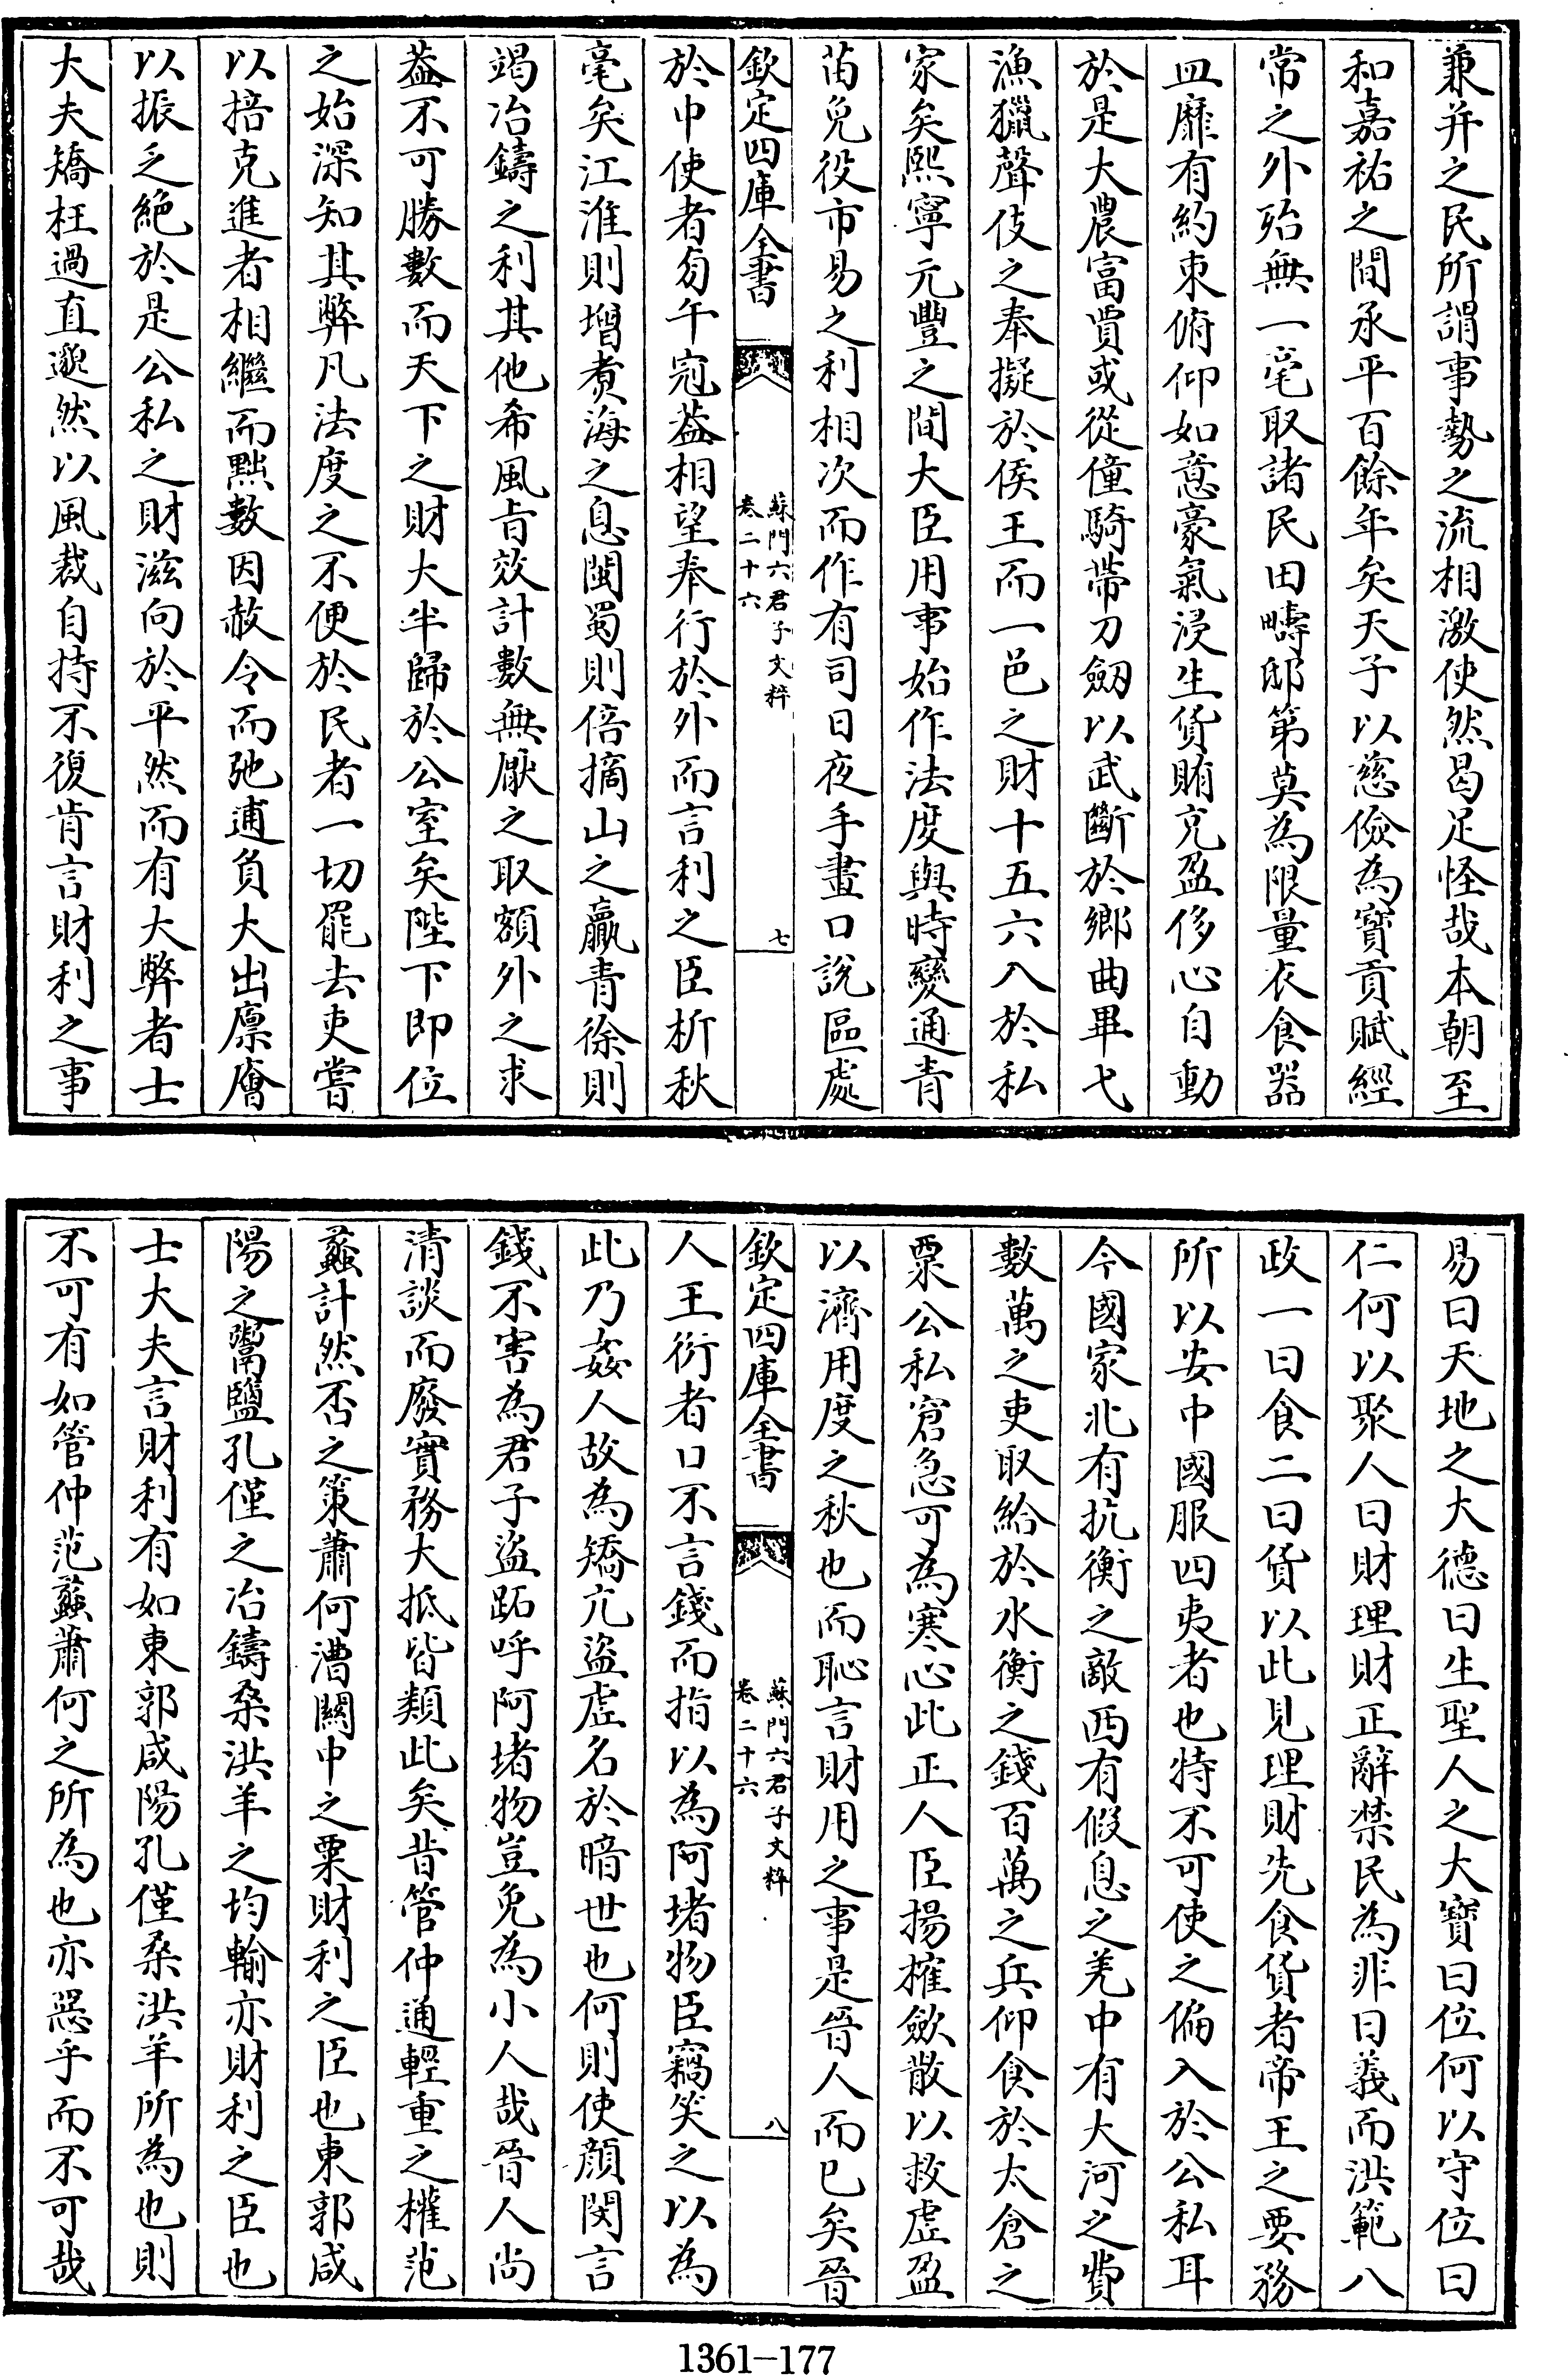 兼并之民所謂事勢之流相激使然曷足怪哉本朝至
和嘉祐之間承平百餘年矣天子以慈儉為寳貢賦經
常之外殆無一毫取諸民田疇邸第莫為限量衣食器
皿靡有約束俯仰如意豪氣浸生貨賄充盈侈心自動
於是大農富賈或從僮騎帶刀劒以武斷於鄉曲畢弋
漁獵聲伎之奉擬於侯王而一邑之財十五六入於私
家矣熙寧元豐之間大臣用事始作法度與時變通青
苗免役市易之利相次而作有司日夜手畫口說區處
欽定四庫全書
蘇門六君子文粹
卷二十六
七
於中使者旁午冠葢相望奉行於外而言利之臣析秋
毫矣江淮則增煑海之息閩蜀則倍摘山之贏青徐則
竭冶鑄之利其他希風㫖效計數無厭之取額外之求
葢不可勝數而天下之財大半歸於公室矣陛下即位
之始深知其弊凡法度之不便於民者一切罷去吏嘗
以掊克進者相繼而黜數因赦令而弛逋負大出廩廥
以振乏絶於是公私之財滋向於平然而有大弊者士
大夫矯枉過直邈然以風裁自持不復肯言財利之事
易曰天地之大德曰生聖人之大寳曰位何以守位曰
仁何以聚人曰財理財正辭禁民為非曰義而洪範八
政一曰食二曰貨以此見理財先食貨者帝王之要務
所以安中國服四夷者也特不可使之偏入於公私耳
今國家北有抗衡之敵西有假息之羌中有大河之費
數萬之吏取給於水衡之錢百萬之兵仰食於太倉之
粟公私窘急可為寒心此正人臣揚搉歛散以救虛盈
以濟用度之秋也而恥言財用之事是晉人而已矣晉
欽定四庫全書
蘇門六君子文粹
卷二十六
八
人王衍者口不言錢而指以為阿堵物臣竊笑之以為
此乃姦人故為矯亢盜虛名於暗世也何則使顔閔言
錢不害為君子盜跖呼阿堵物豈免為小人哉晉人尚
清談而廢實務大抵皆類此矣昔管仲通輕重之權范
蠡計然否之策蕭何漕關中之粟財利之臣也東郭咸
陽之鬻鹽孔僅之冶鑄桑洪羊之均輸亦財利之臣也
士大夫言財利有如東郭咸陽孔僅桑洪羊所為也則
不可有如管仲范蠡蕭何之所為也亦惡乎而不可哉
1361-177